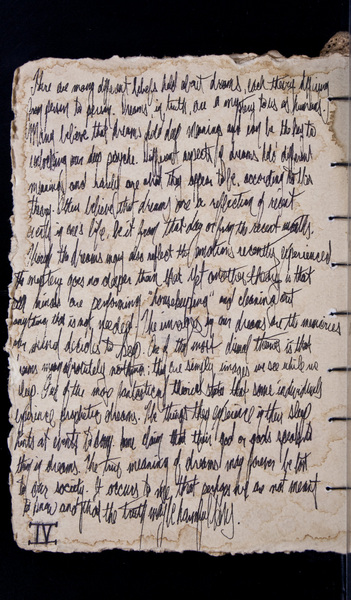 There are many different beliefs held about dreams, each theory differing
from person to person. Dreams, in truth, are a mystery to us as humans.
Many believe that dreams hold deep meaning and can be the key to
unlocking our deep psyche. Different aspects of dreams hold different
meanings and rarely are what they appear to be, according to this
theory. Others believe that dreams are a reflection of recent
events in one's life, be it from that day or from the recent months.
Though the dreams may also reflect the emotions recently experienced
the mystery goes no deeper than that. Yet another theory is that
our minds are performing "housekeeping" and cleaning out
anything that is not needed. The images in our dreams are the memories
our mind decides to keep. One of the most theories is that
dreams mean absolutely nothing. They are simply images we see while we
sleep. One of the more fantastical theories states that some individuals
experience prophetic dreams. The things they experience in their sleep
hints at events to come. Some claim that their god or gods speak to
them in dreams. The true meaning of dreams may forever be lost
to our society. It occurs to me, that perhaps we are not meant
to know and that the truth may be harmful to us.
IV